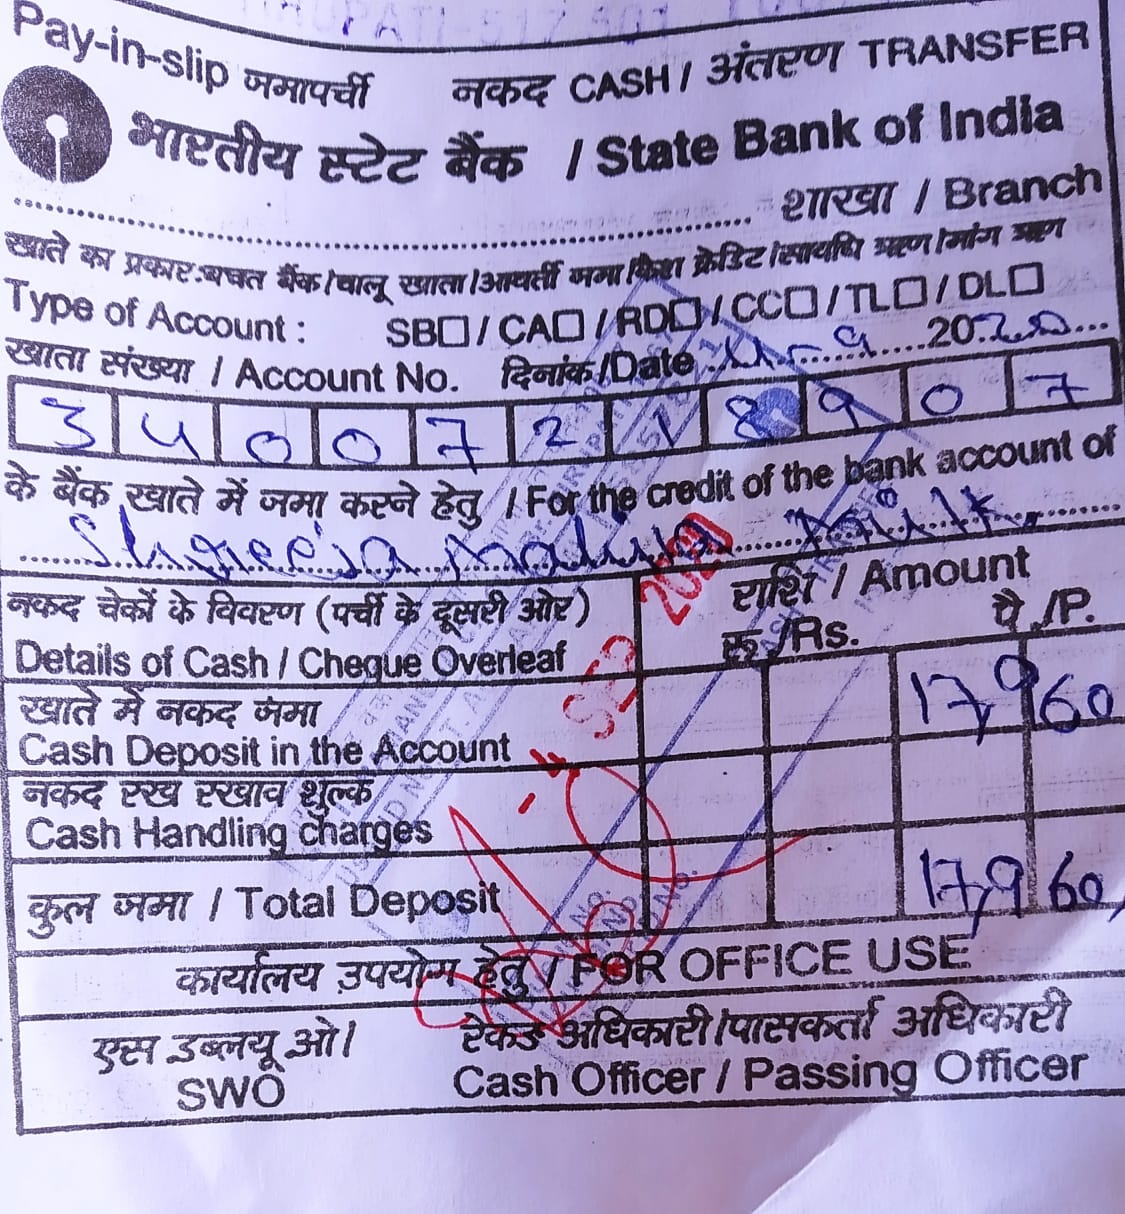 TIRUPATI-517 501
Pay-in-slip जमापर्ची नकद CASH / अंतरण TRANSFER
भारतीय स्टेट बैंक / State Bank of India
शाखा / Branch
खाते का प्रकार:बचत बैंक/चालू खाता/आवर्ती जमा/कैश क्रेडिट/सावधि ऋण/मांग ऋण
Type of Account : SB☐ / CA☐ / RD☐ / CC☐ / TL☐ / DL☐
खाता संख्या / Account No. दिनांक/Date 4-9 2020
3 4 0 0 7 2 1 8 9 0 7
के बैंक खाते में जमा करने हेतु / For the credit of the bank account of
Milk
नकद चेकों के विवरण (पर्ची के दूसरी ओर) राशि / Amount
Details of Cash / Cheque Overleaf रू./Rs. पै./P.
खाते में नकद जमा 17,960
Cash Deposit in the Account
-4 SEP 2020
नकद रख रखाव शुल्क
Cash Handling charges
कुल जमा / Total Deposit 17,960
कार्यालय उपयोग हेतु / FOR OFFICE USE
एस डब्लयू ओ। रोकड अधिकारी/पासकर्ता अधिकारी
SWO Cash Officer / Passing Officer